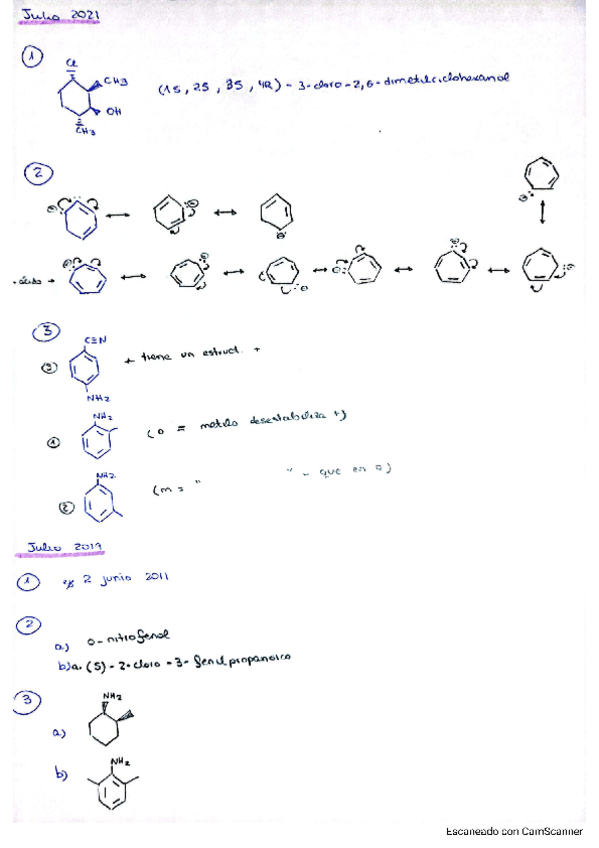 Julio 2021
1
Cl
CH3
OH
CH3
(1S, 2S, 3S, 4R) - 3-cloro-2,6-dimetilciclohexanol
2
+ ácido →
3
C≡N
③
+ tiene un estruct. +
NH2
NH2
①
(o = metilo desestabiliza +)
NH2
②
(m = " " - que en o)
Julio 2019
1
ej 2 junio 2011
2
a) o-nitrofenol
b) a. (S)-2-cloro-3-fenilpropanoico
3
NH2
a)
NH2
b)
Escaneado con CamScanner